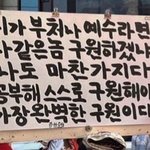 이가 부처나 예수라면
나같은금 구원하겠나
나도 마찬가지다
공부해 스스로 구원해야
가장완벽한 구원이다